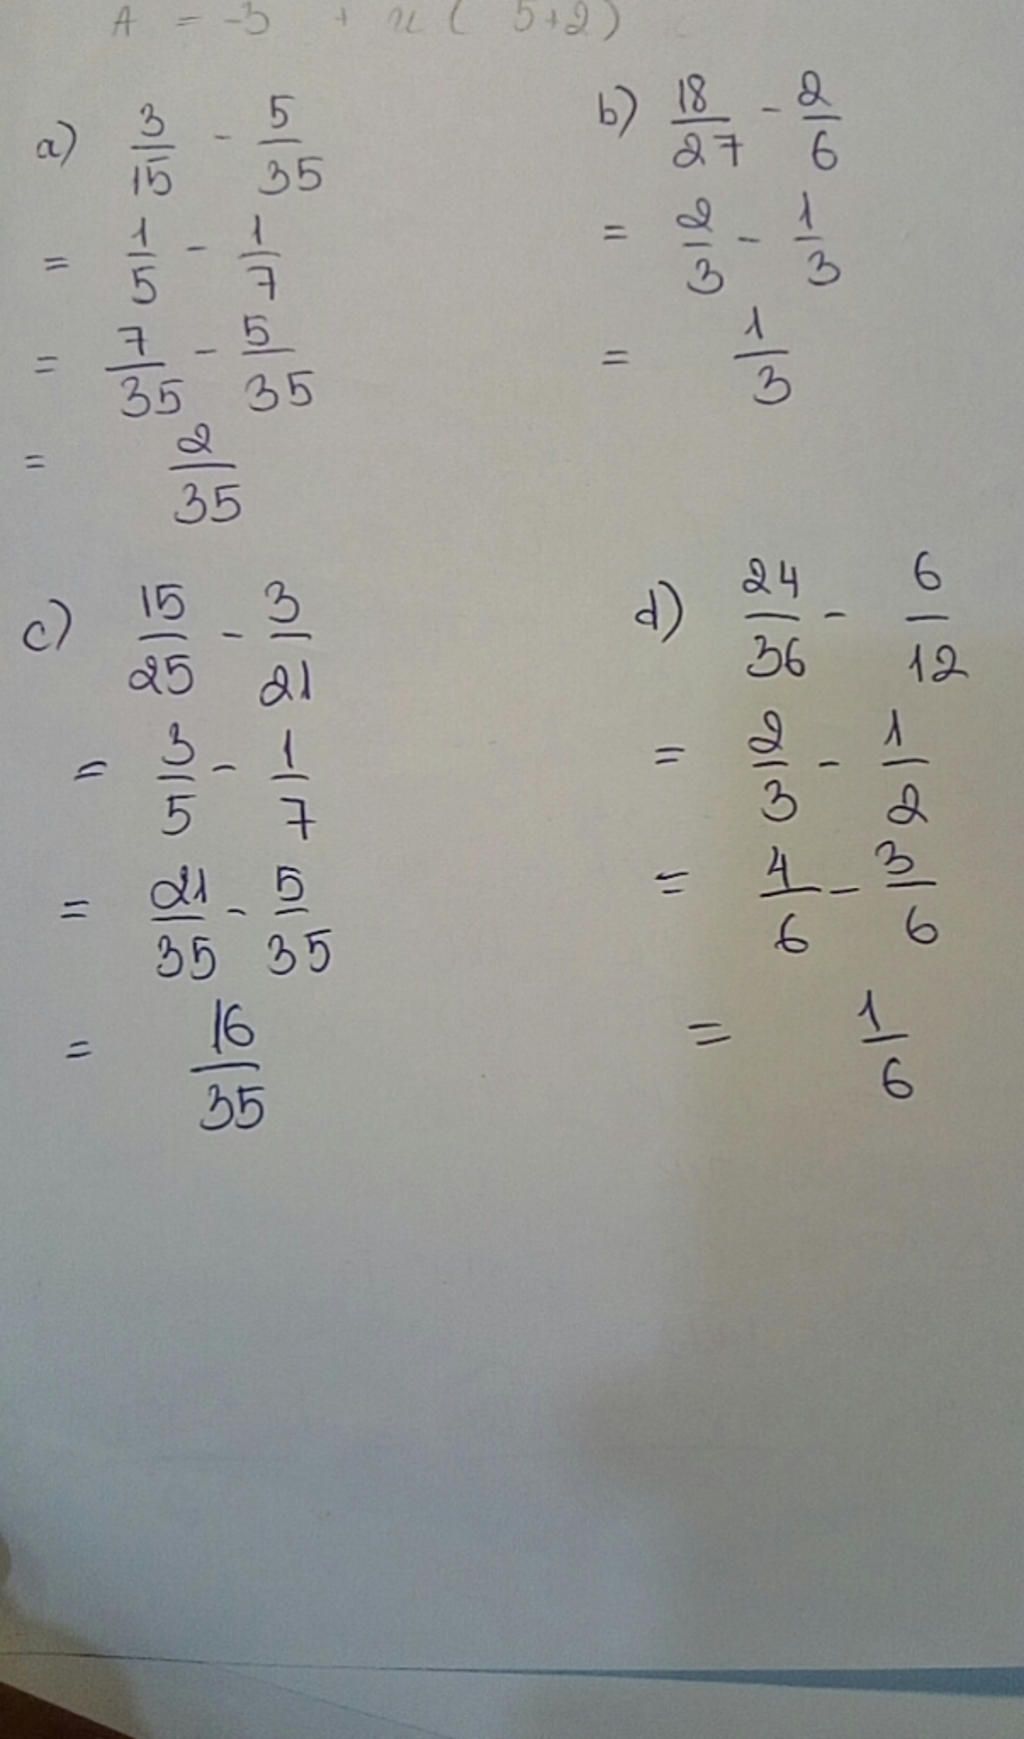 A = -3 + x ( 5+2)
a) 3/15 - 5/35
= 1/5 - 1/7
= 7/35 - 5/35
= 2/35
b) 18/27 - 2/6
= 2/3 - 1/3
= 1/3
c) 15/25 - 3/21
= 3/5 - 1/7
= 21/35 - 5/35
= 16/35
d) 24/36 - 6/12
= 2/3 - 1/2
= 4/6 - 3/6
= 1/6